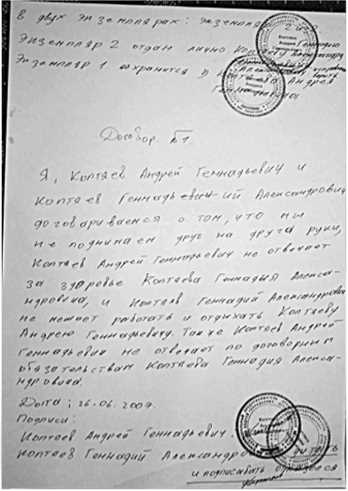 В двух экземплярах: экземпляр
Экземпляр 2 отдан лично Геннадию
Экземпляр 1 сохранится Андрея
Геннадьевича
Договор №1
Я, Коптяев Андрей Геннадьевич и
Коптяев Геннадьевич-ий Александрович
договариваемся о том, что мы
не поднимаем друг на друга руки,
Коптяев Андрей Геннадьевич не отвечает
за здоровье Коптяева Геннадия Алекса-
ндровича, и Коптяев Геннадий Александрович
не мешает работать и отдыхать Коптяеву
Андрею Геннадьевичу. Также Коптяев Андрей
Геннадьевич не отвечает по договорным
обязательствам Коптяева Геннадия Алекса-
ндровича.
Дата: 26.06.2009.
Подписи:
Коптяев Андрей Геннадьевич.
Коптяев Геннадий Александрович
и подписывать